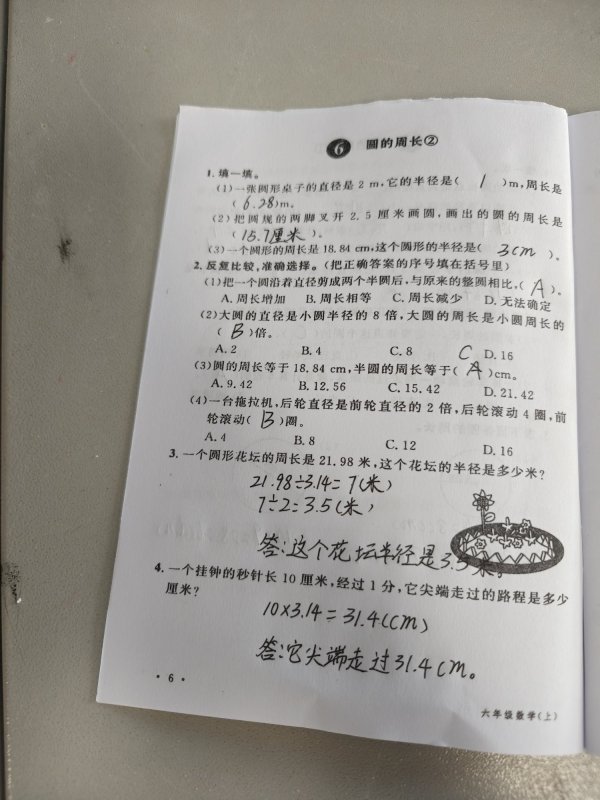 6 圆的周长②
1. 填一填。
(1)一张圆形桌子的直径是 2 m,它的半径是( 1 )m,周长是
( 6.28)m。
(2)把圆规的两脚叉开 2.5 厘米画圆,画出的圆的周长是
(15.7厘米)。
(3)一个圆形的周长是 18.84 cm,这个圆形的半径是( 3cm )。
2. 反复比较,准确选择。(把正确答案的序号填在括号里)
(1)把一个圆沿着直径剪成两个半圆后,与原来的整圆相比,( A )。
A. 周长增加 B. 周长相等 C. 周长减少 D. 无法确定
(2)大圆的直径是小圆半径的 8 倍,大圆的周长是小圆周长的
( B )倍。
A. 2 B. 4 C. 8 C D. 16
(3)圆的周长等于 18.84 cm,半圆的周长等于( A )cm。
A. 9.42 B. 12.56 C. 15.42 D. 21.42
(4)一台拖拉机,后轮直径是前轮直径的 2 倍,后轮滚动 4 圈,前
轮滚动( B )圈。
A. 4 B. 8 C. 12 D. 16
3. 一个圆形花坛的周长是 21.98 米,这个花坛的半径是多少米?
21.98÷3.14=7(米)
7÷2=3.5(米)
答:这个花坛半径是3.5米。
4. 一个挂钟的秒针长 10 厘米,经过 1 分,它尖端走过的路程是多少
厘米?
10×3.14=31.4(cm)
答:它尖端走过31.4cm。
• 6 •
六年级数学(上)